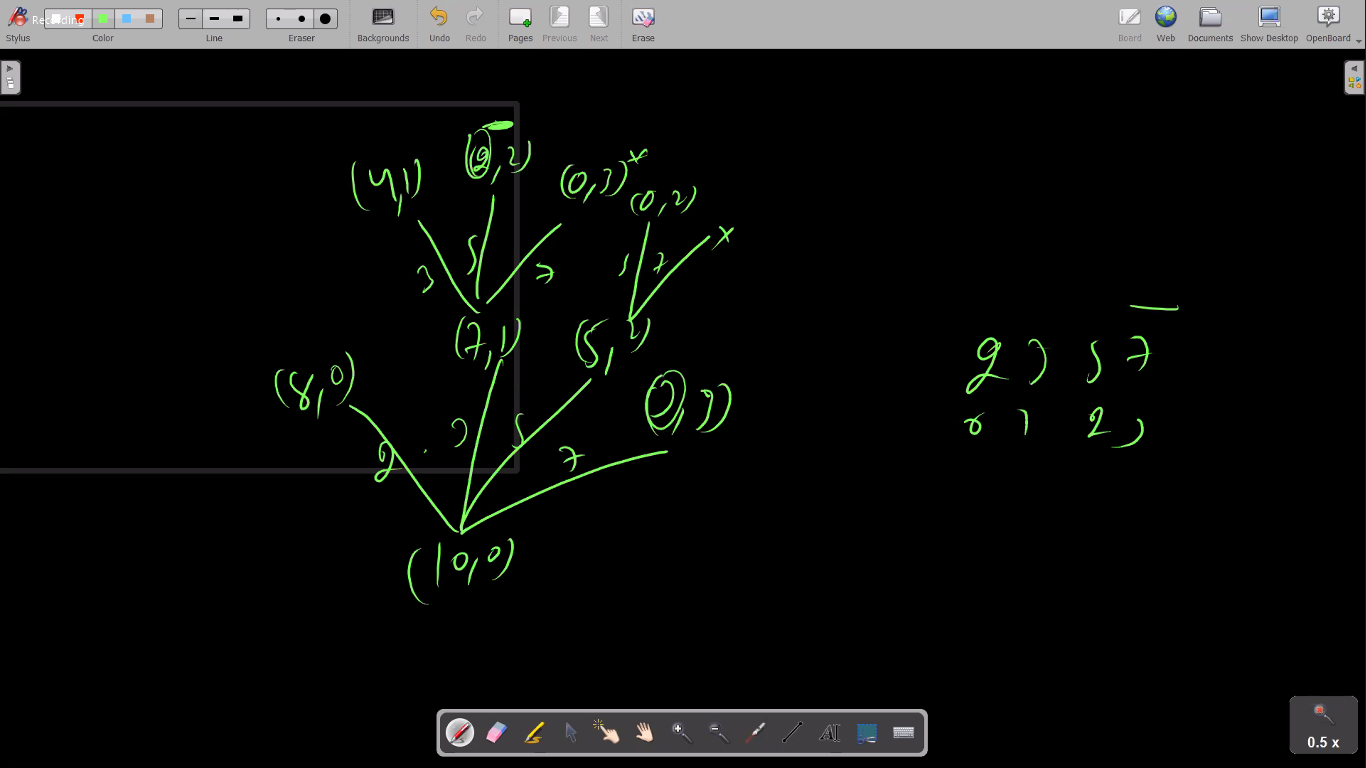 Recording
Stylus Color Line Eraser Backgrounds Undo Redo Pages Previous Next Erase Board Web Documents Show Desktop OpenBoard
(4,1) (2,2) (0,3) x
(0,2)
x
3 5 7 5 7
(7,1) (5,2)
(8,0)
2 3 5 7
(10,0)
2 3 5 7
0 1 2 3
0.5 x